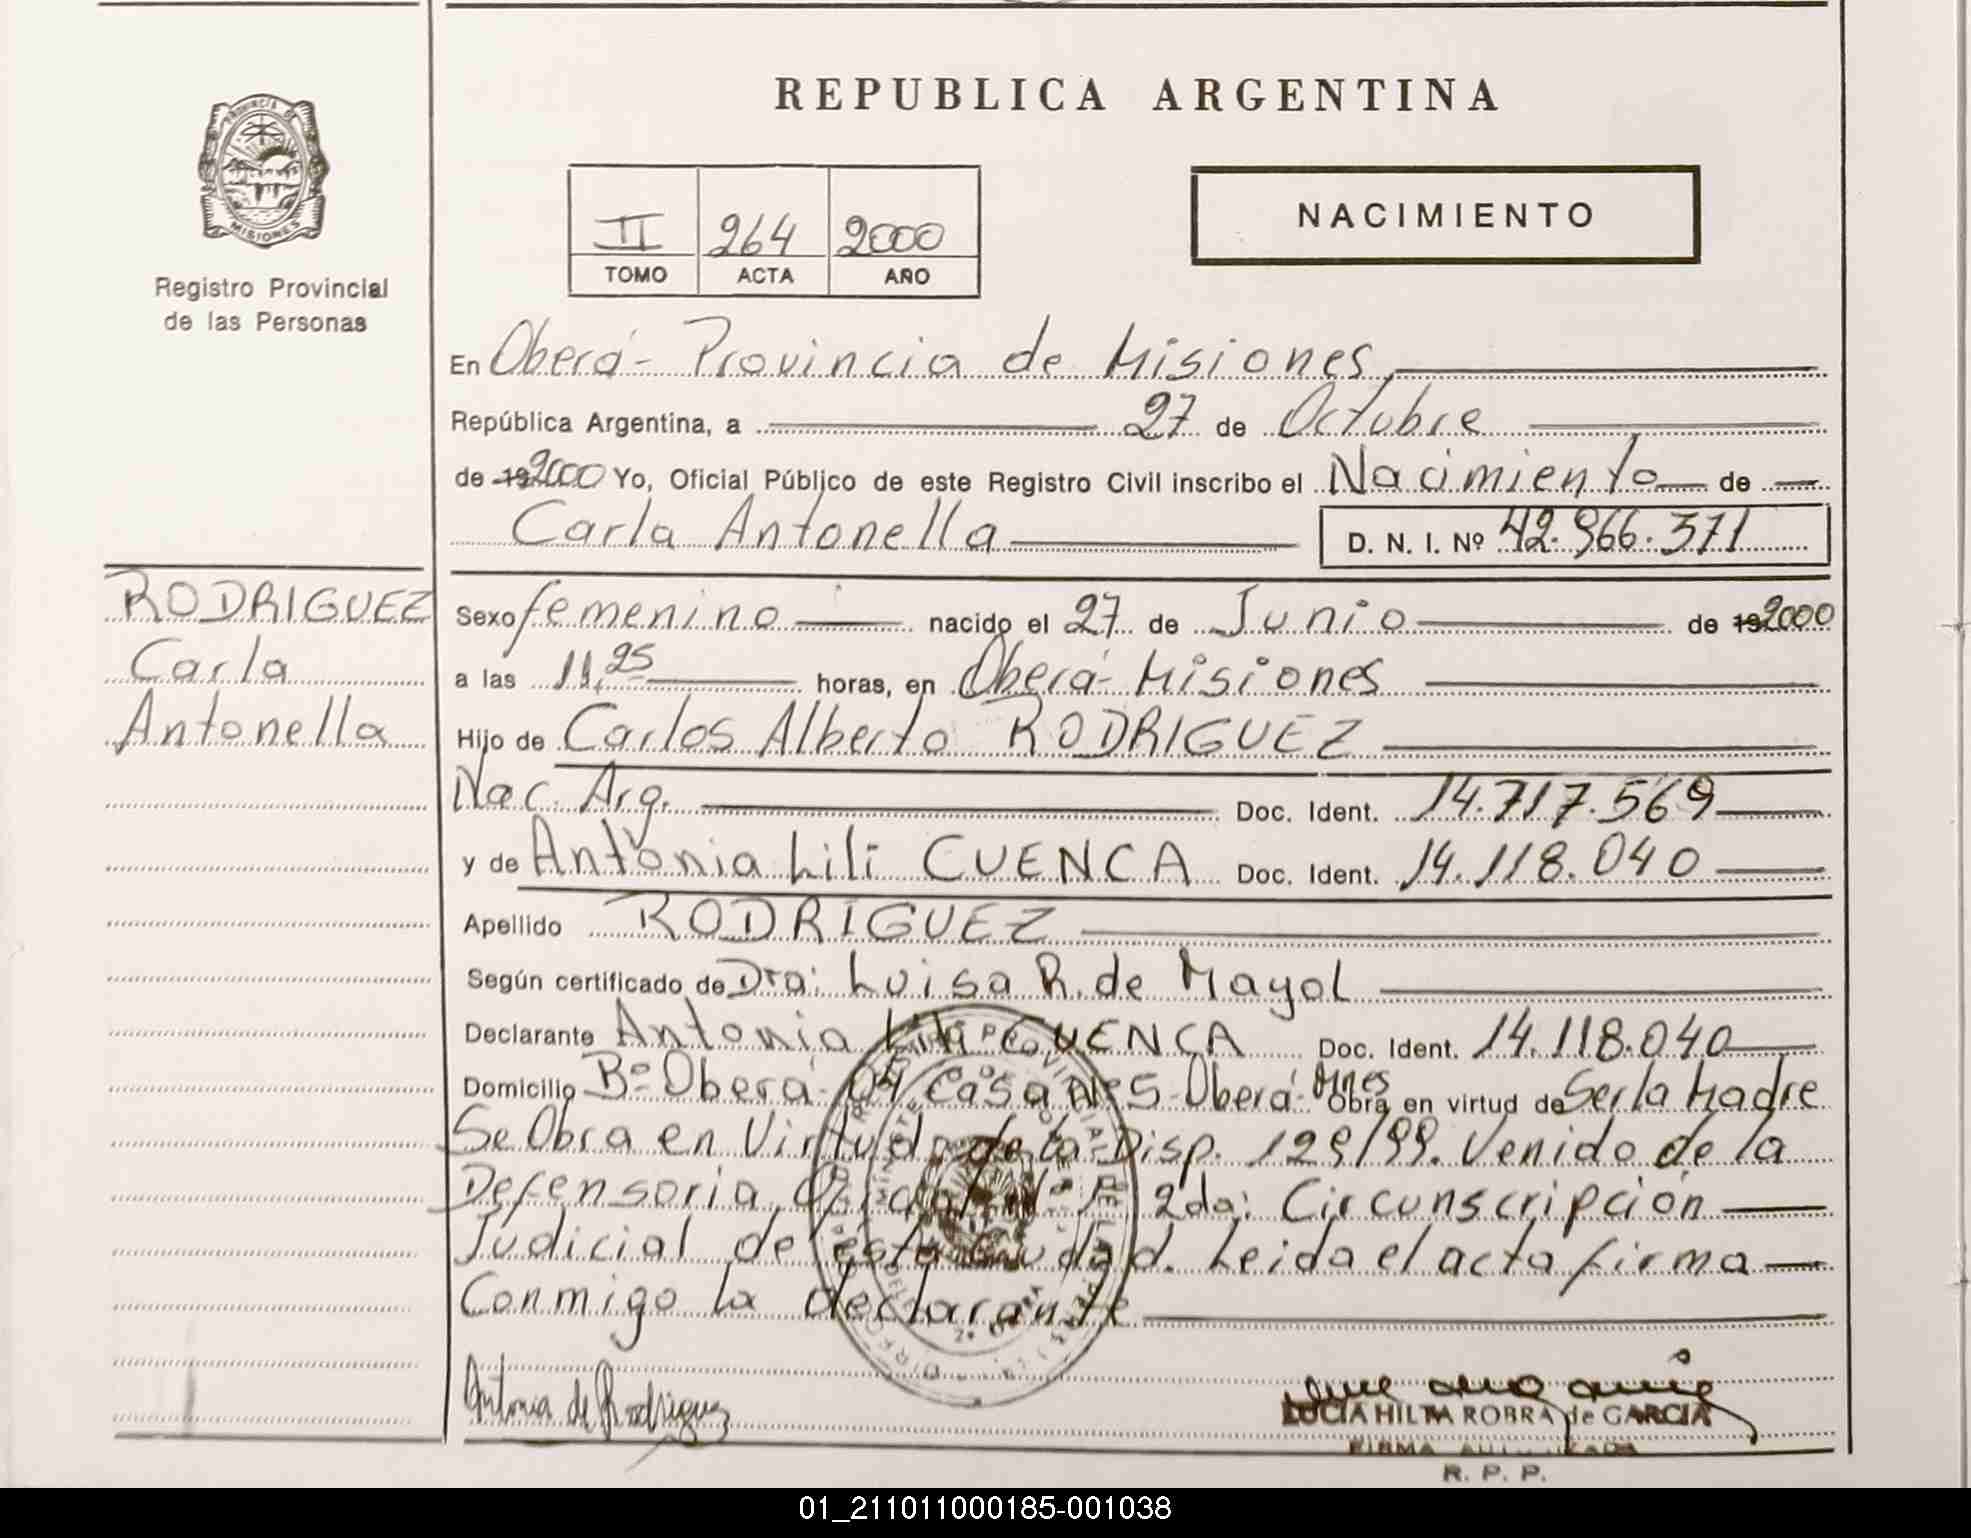 REPUBLICA ARGENTINA
PROVINCIA DE
MISIONES
Registro Provincial
de las Personas
II 264 2000
TOMO ACTA AÑO
NACIMIENTO
En Oberá - Provincia de Misiones,
República Argentina, a 27 de Octubre
de 19 2000 Yo, Oficial Público de este Registro Civil inscribo el Nacimiento de
Carla Antonella D. N. I. Nº 42.966.371
RODRIGUEZ
Carla
Antonella
Sexo femenino nacido el 27 de Junio de 19 2000
a las 11,25 horas, en Oberá - Misiones
Hijo de Carlos Alberto RODRIGUEZ
Nac. Arg. Doc. Ident. 14.717.569
y de Antonia Lili CUENCA Doc. Ident. 14.118.040
Apellido RODRIGUEZ
Según certificado de Dra: Luisa R. de Mayol
Declarante Antonia Lili CUENCA Doc. Ident. 14.118.040
Domicilio Bº Oberá Casa Nº 5 - Oberá - Mnes Obra en virtud de Ser la Madre
Se Obra en Virtud de la Disp. 129/99. Venido de la
Defensoria Oficial Nº 2da: Circunscripción
Judicial de esta Ciudad. Leida el acta firma
Conmigo la declarante
Antonia de Rodriguez
LUCIA HILDA ROBRA de GARCIA
FIRMA AUTORIZADA
R. P. P.
01_211011000185-001038